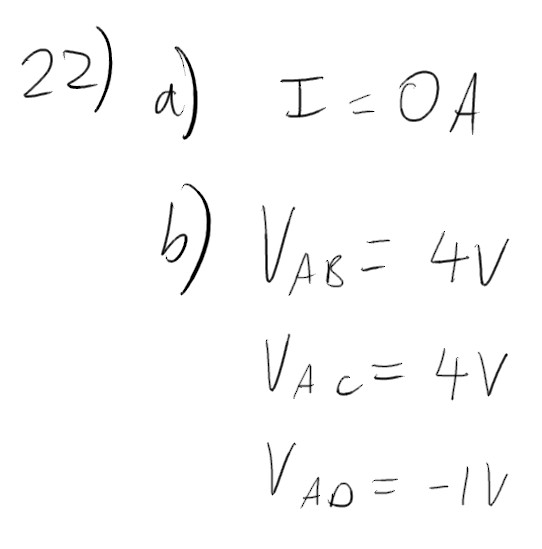 22) a) I = 0A
b) V_AB = 4V
V_AC = 4V
V_AD = -1V